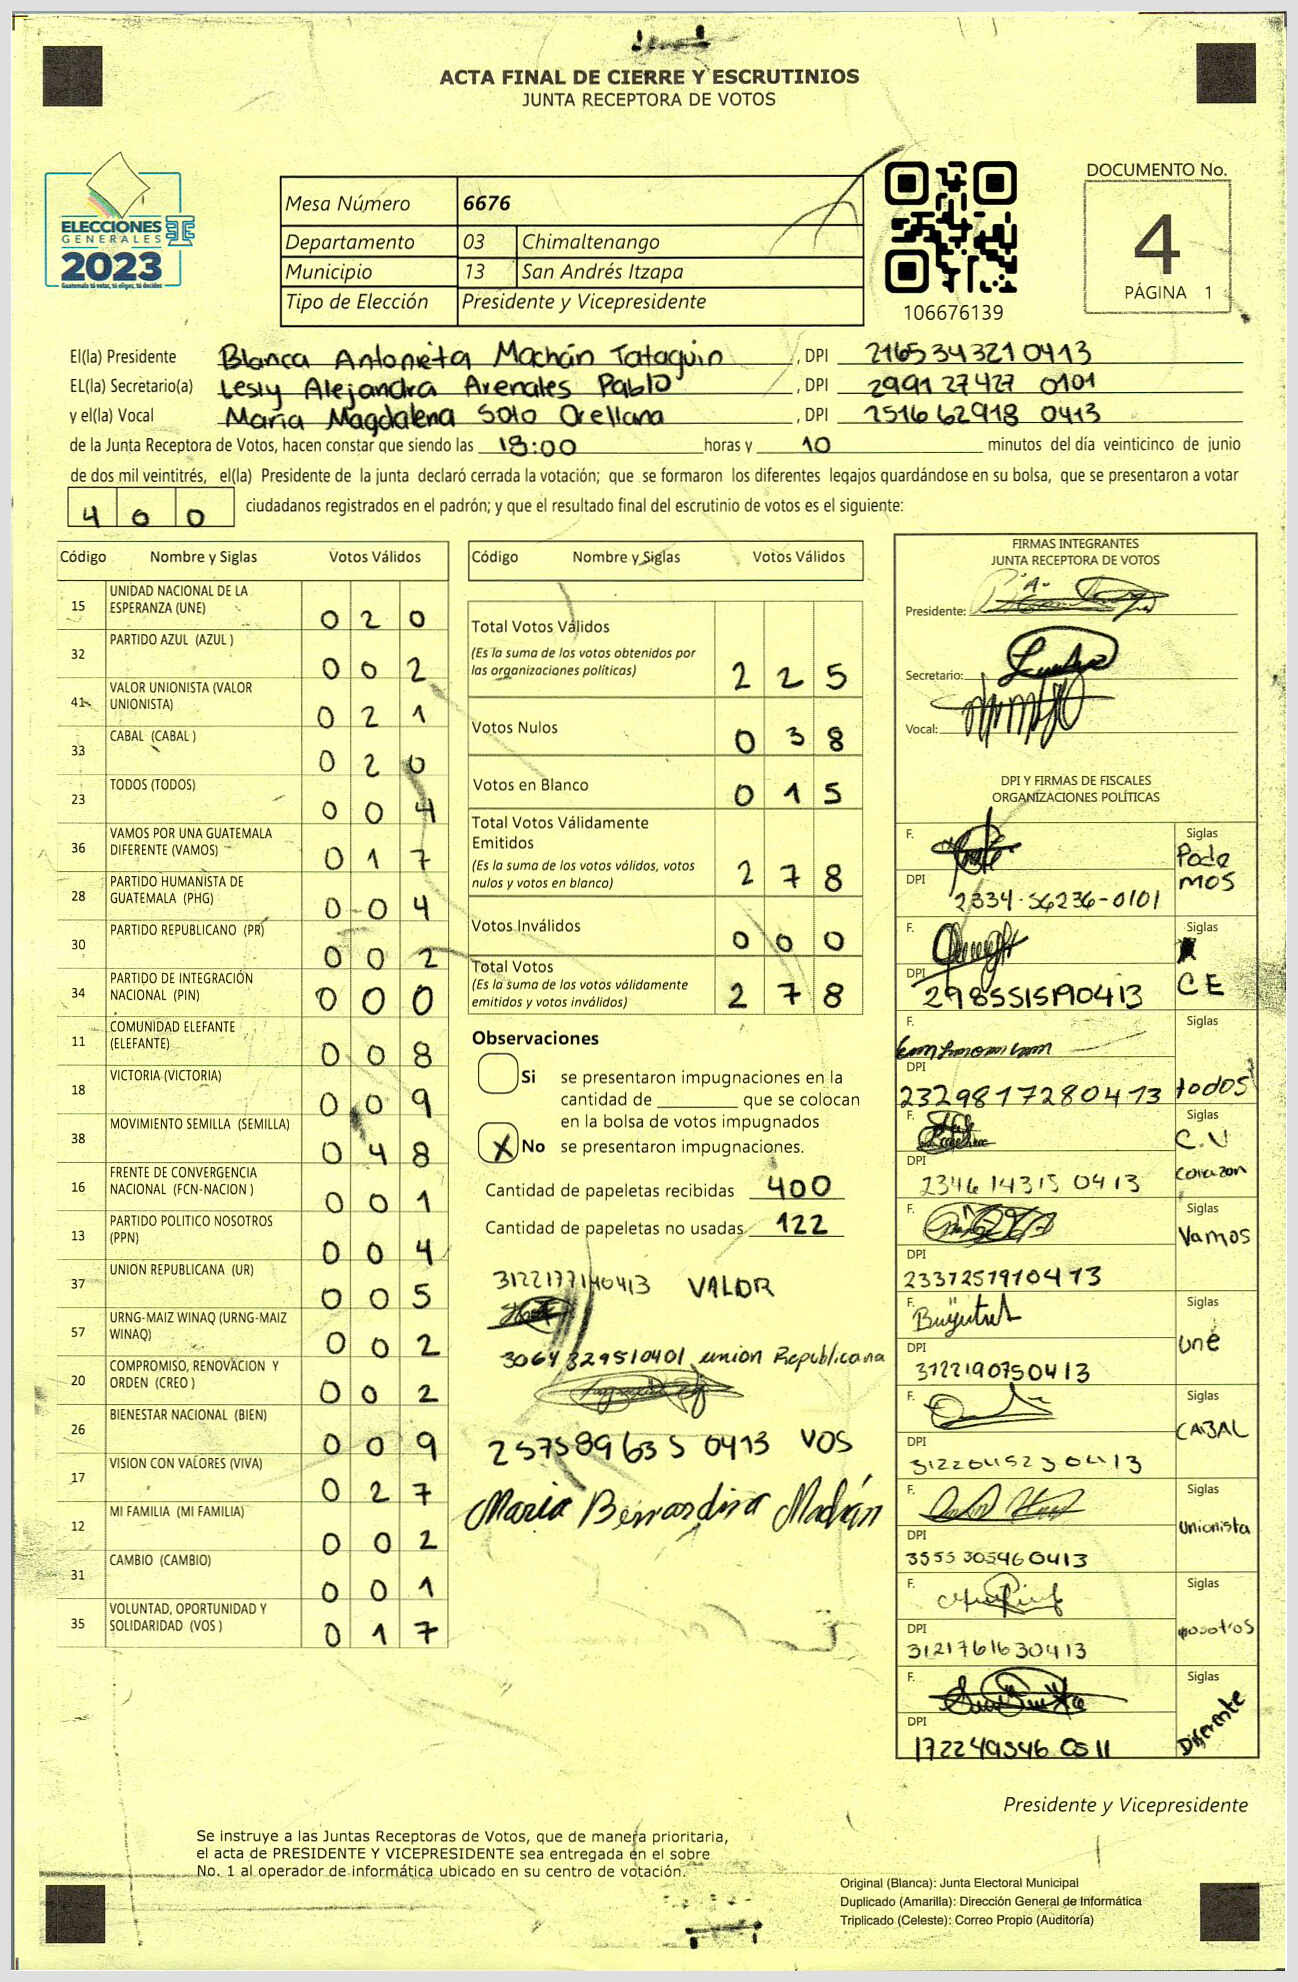 ACTA FINAL DE CIERRE Y ESCRUTINIOS
JUNTA RECEPTORA DE VOTOS
ELECCIONES
GENERALES
2023
Guatemala tú votas, tú eliges, tú decides
Mesa Número 6676
Departamento 03 Chimaltenango
Municipio 13 San Andrés Itzapa
Tipo de Elección Presidente y Vicepresidente
106676139
DOCUMENTO No.
4
PÁGINA 1
El(la) Presidente Blanca Antonieta Machán Tataguin, DPI 2165343210413
EL(la) Secretario(a) Lesly Alejandra Arenales Pablo, DPI 299127427 0101
y el(la) Vocal María Magdalena Solo Orellana, DPI 251662918 0413
de la Junta Receptora de Votos, hacen constar que siendo las 18:00 horas y 10 minutos del día veinticinco de junio
de dos mil veintitrés, el(la) Presidente de la junta declaró cerrada la votación; que se formaron los diferentes legajos guardándose en su bolsa, que se presentaron a votar
400 ciudadanos registrados en el padrón; y que el resultado final del escrutinio de votos es el siguiente:
Código Nombre y Siglas Votos Válidos
15 UNIDAD NACIONAL DE LA ESPERANZA (UNE) 0 2 0
32 PARTIDO AZUL (AZUL ) 0 0 2
41 VALOR UNIONISTA (VALOR UNIONISTA) 0 2 1
33 CABAL (CABAL ) 0 2 0
23 TODOS (TODOS) 0 0 4
36 VAMOS POR UNA GUATEMALA DIFERENTE (VAMOS) 0 1 7
28 PARTIDO HUMANISTA DE GUATEMALA (PHG) 0 0 4
30 PARTIDO REPUBLICANO (PR) 0 0 2
34 PARTIDO DE INTEGRACIÓN NACIONAL (PIN) 0 0 0
11 COMUNIDAD ELEFANTE (ELEFANTE) 0 0 8
18 VICTORIA (VICTORIA) 0 0 9
38 MOVIMIENTO SEMILLA (SEMILLA) 0 4 8
16 FRENTE DE CONVERGENCIA NACIONAL (FCN-NACION ) 0 0 1
13 PARTIDO POLITICO NOSOTROS (PPN) 0 0 4
37 UNION REPUBLICANA (UR) 0 0 5
57 URNG-MAIZ WINAQ (URNG-MAIZ WINAQ) 0 0 2
20 COMPROMISO, RENOVACION Y ORDEN (CREO ) 0 0 2
26 BIENESTAR NACIONAL (BIEN) 0 0 9
17 VISION CON VALORES (VIVA) 0 2 7
12 MI FAMILIA (MI FAMILIA) 0 0 2
31 CAMBIO (CAMBIO) 0 0 1
35 VOLUNTAD, OPORTUNIDAD Y SOLIDARIDAD (VOS ) 0 1 7
Código Nombre y Siglas Votos Válidos
Total Votos Válidos 2 2 5
(Es la suma de los votos obtenidos por
las organizaciones politicas)
Votos Nulos 0 3 8
Votos en Blanco 0 1 5
Total Votos Válidamente
Emitidos 2 7 8
(Es la suma de los votos válidos, votos
nulos y votos en blanco)
Votos Inválidos 0 0 0
Total Votos 2 7 8
(Es la suma de los votos válidamente
emitidos y votos inválidos)
Observaciones
Si se presentaron impugnaciones en la
cantidad de ________ que se colocan
en la bolsa de votos impugnados
X No se presentaron impugnaciones.
Cantidad de papeletas recibidas 400
Cantidad de papeletas no usadas 122
3122177140413 VALOR
3064329510401 union Republicana
257589635 0413 VOS
Maria Bernardina Machán
FIRMAS INTEGRANTES
JUNTA RECEPTORA DE VOTOS
Presidente:
Secretario:
Vocal:
DPI Y FIRMAS DE FISCALES
ORGANIZACIONES POLÍTICAS
F. Siglas
Podemos
DPI 2334-56236-0101
F. Siglas
CE
DPI 2985515190413
F. Siglas
todos
DPI 2329817280413
F. Siglas
C.V
corazon
DPI 2346 14315 0413
F. Siglas
Vamos
DPI 2337257910413
F. Siglas
une
DPI 3122190750413
F. Siglas
CABAL
DPI 3122045230413
F. Siglas
Unionista
DPI 3555305460413
F. Siglas
nosotros
DPI 3121761630413
F. Siglas
Diferente
DPI 172249546 0511
Presidente y Vicepresidente
Se instruye a las Juntas Receptoras de Votos, que de manera prioritaria,
el acta de PRESIDENTE Y VICEPRESIDENTE sea entregada en el sobre
No. 1 al operador de informática ubicado en su centro de votación.
Original (Blanca): Junta Electoral Municipal
Duplicado (Amarilla): Dirección General de Informática
Triplicado (Celeste): Correo Propio (Auditoría)